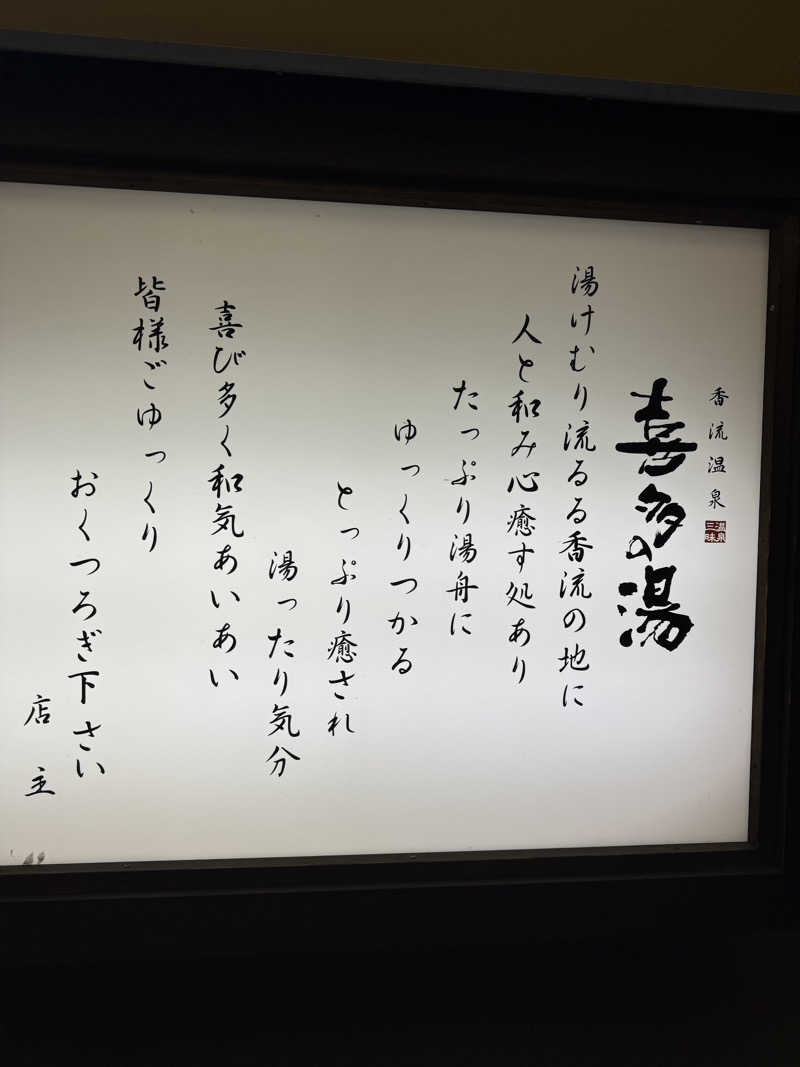 香流温泉
温泉三昧
喜多の湯
湯けむり流るる香流の地に
人と和み心癒す処あり
たっぷり湯舟に
ゆっくりつかる
とっぷり癒され
湯ったり気分
喜び多く和気あいあい
皆様ごゆっくり
おくつろぎ下さい
店主